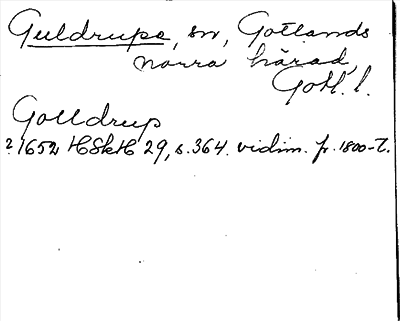 Guldrupe, sn, Gotlands
norra härad,
Gotl. l.
Golldrup
? 1652 HSkH 29, s. 364. vidim. fr. 1800-t.